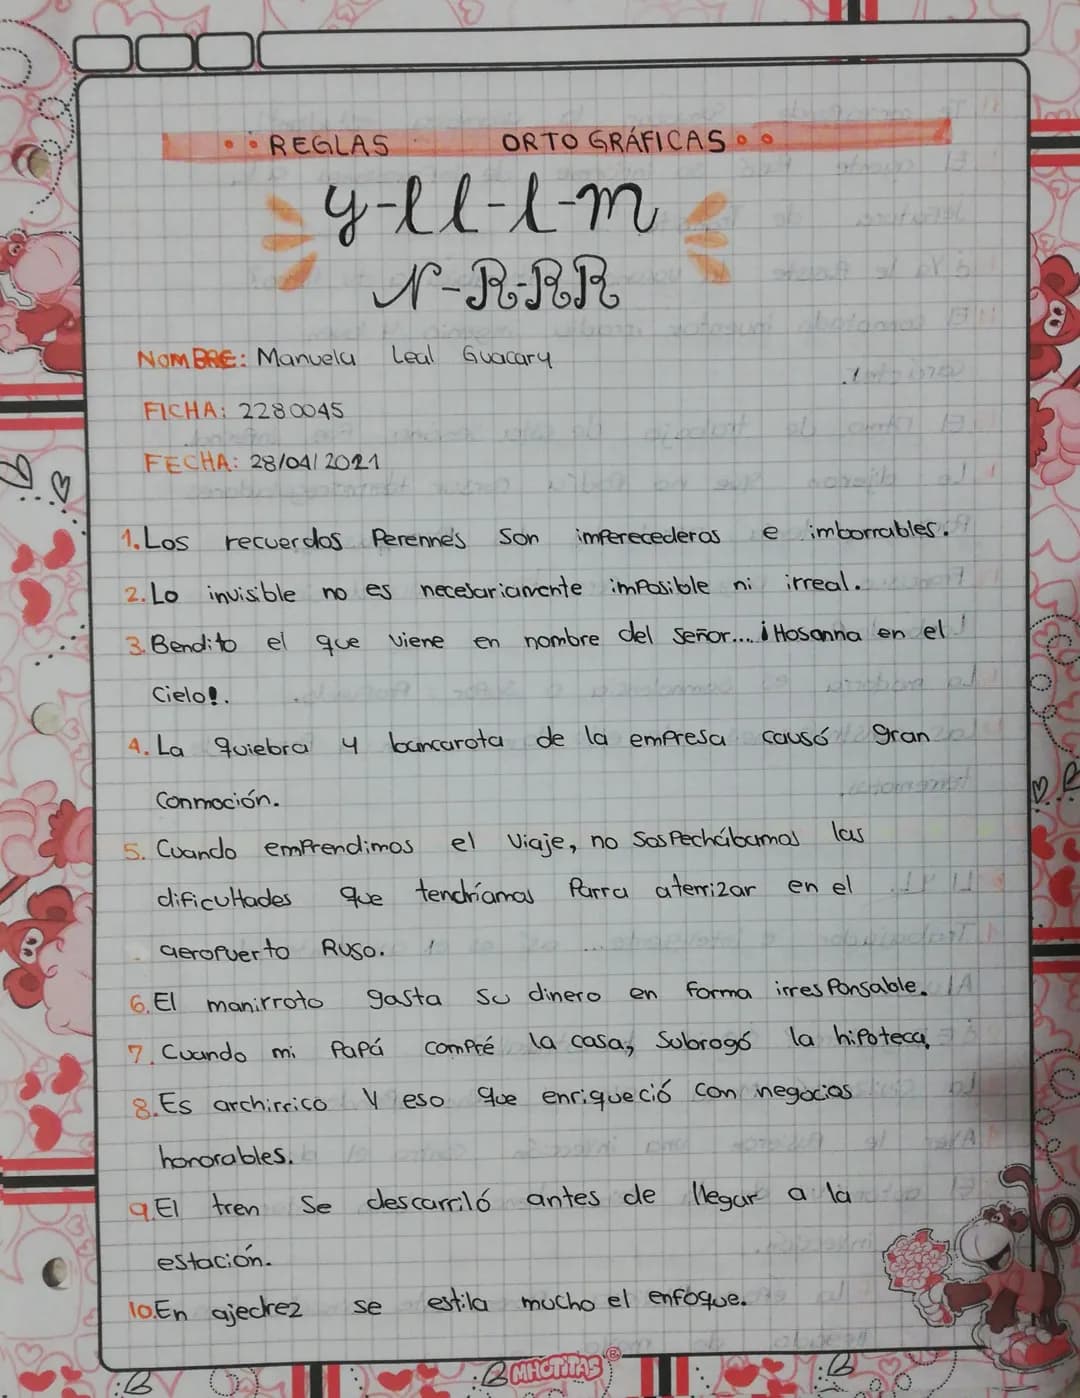 REGLAS ORTOGRÁFICAS
y-ll-l-m
N-R-RR
NOMBRE: Manuela Leal Guacary
FICHA: 2280045
FECHA: 28/04/2021
1. Los recuerdos Perennes Son imperecederos e imborrables.
2. Lo invisible no es necesariamente imposible ni irreal.
3. Bendito el que viene en nombre del señor... ¡Hosanna en el
Cielo!.
4. La quiebra y bancarota de la empresa causó gran
Conmoción.
5. Cuando emprendimos el viaje, no Sospechábamos las
dificultades que tendríamos Parra aterrizar en el
aeropuerto Ruso.
6. El manirroto gasta su dinero en forma irresponsable.
7. Cuando mi Papá compré la casa, Subrogó la hipoteca,
8. Es archirrico y eso que enriqueció con negocios
honorables.
9. El tren Se descarriló antes de llegar a la
estación.
10. En ajedrez se estila mucho el enfoque.
MHOTITAS